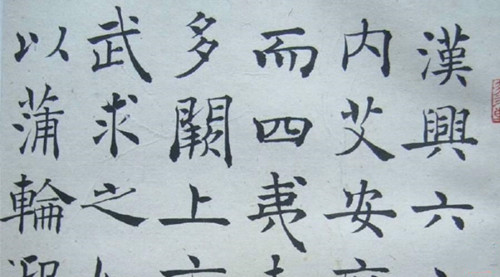 漢興六
内艾安
而四夷
多闕上
武求之
以蒲輪